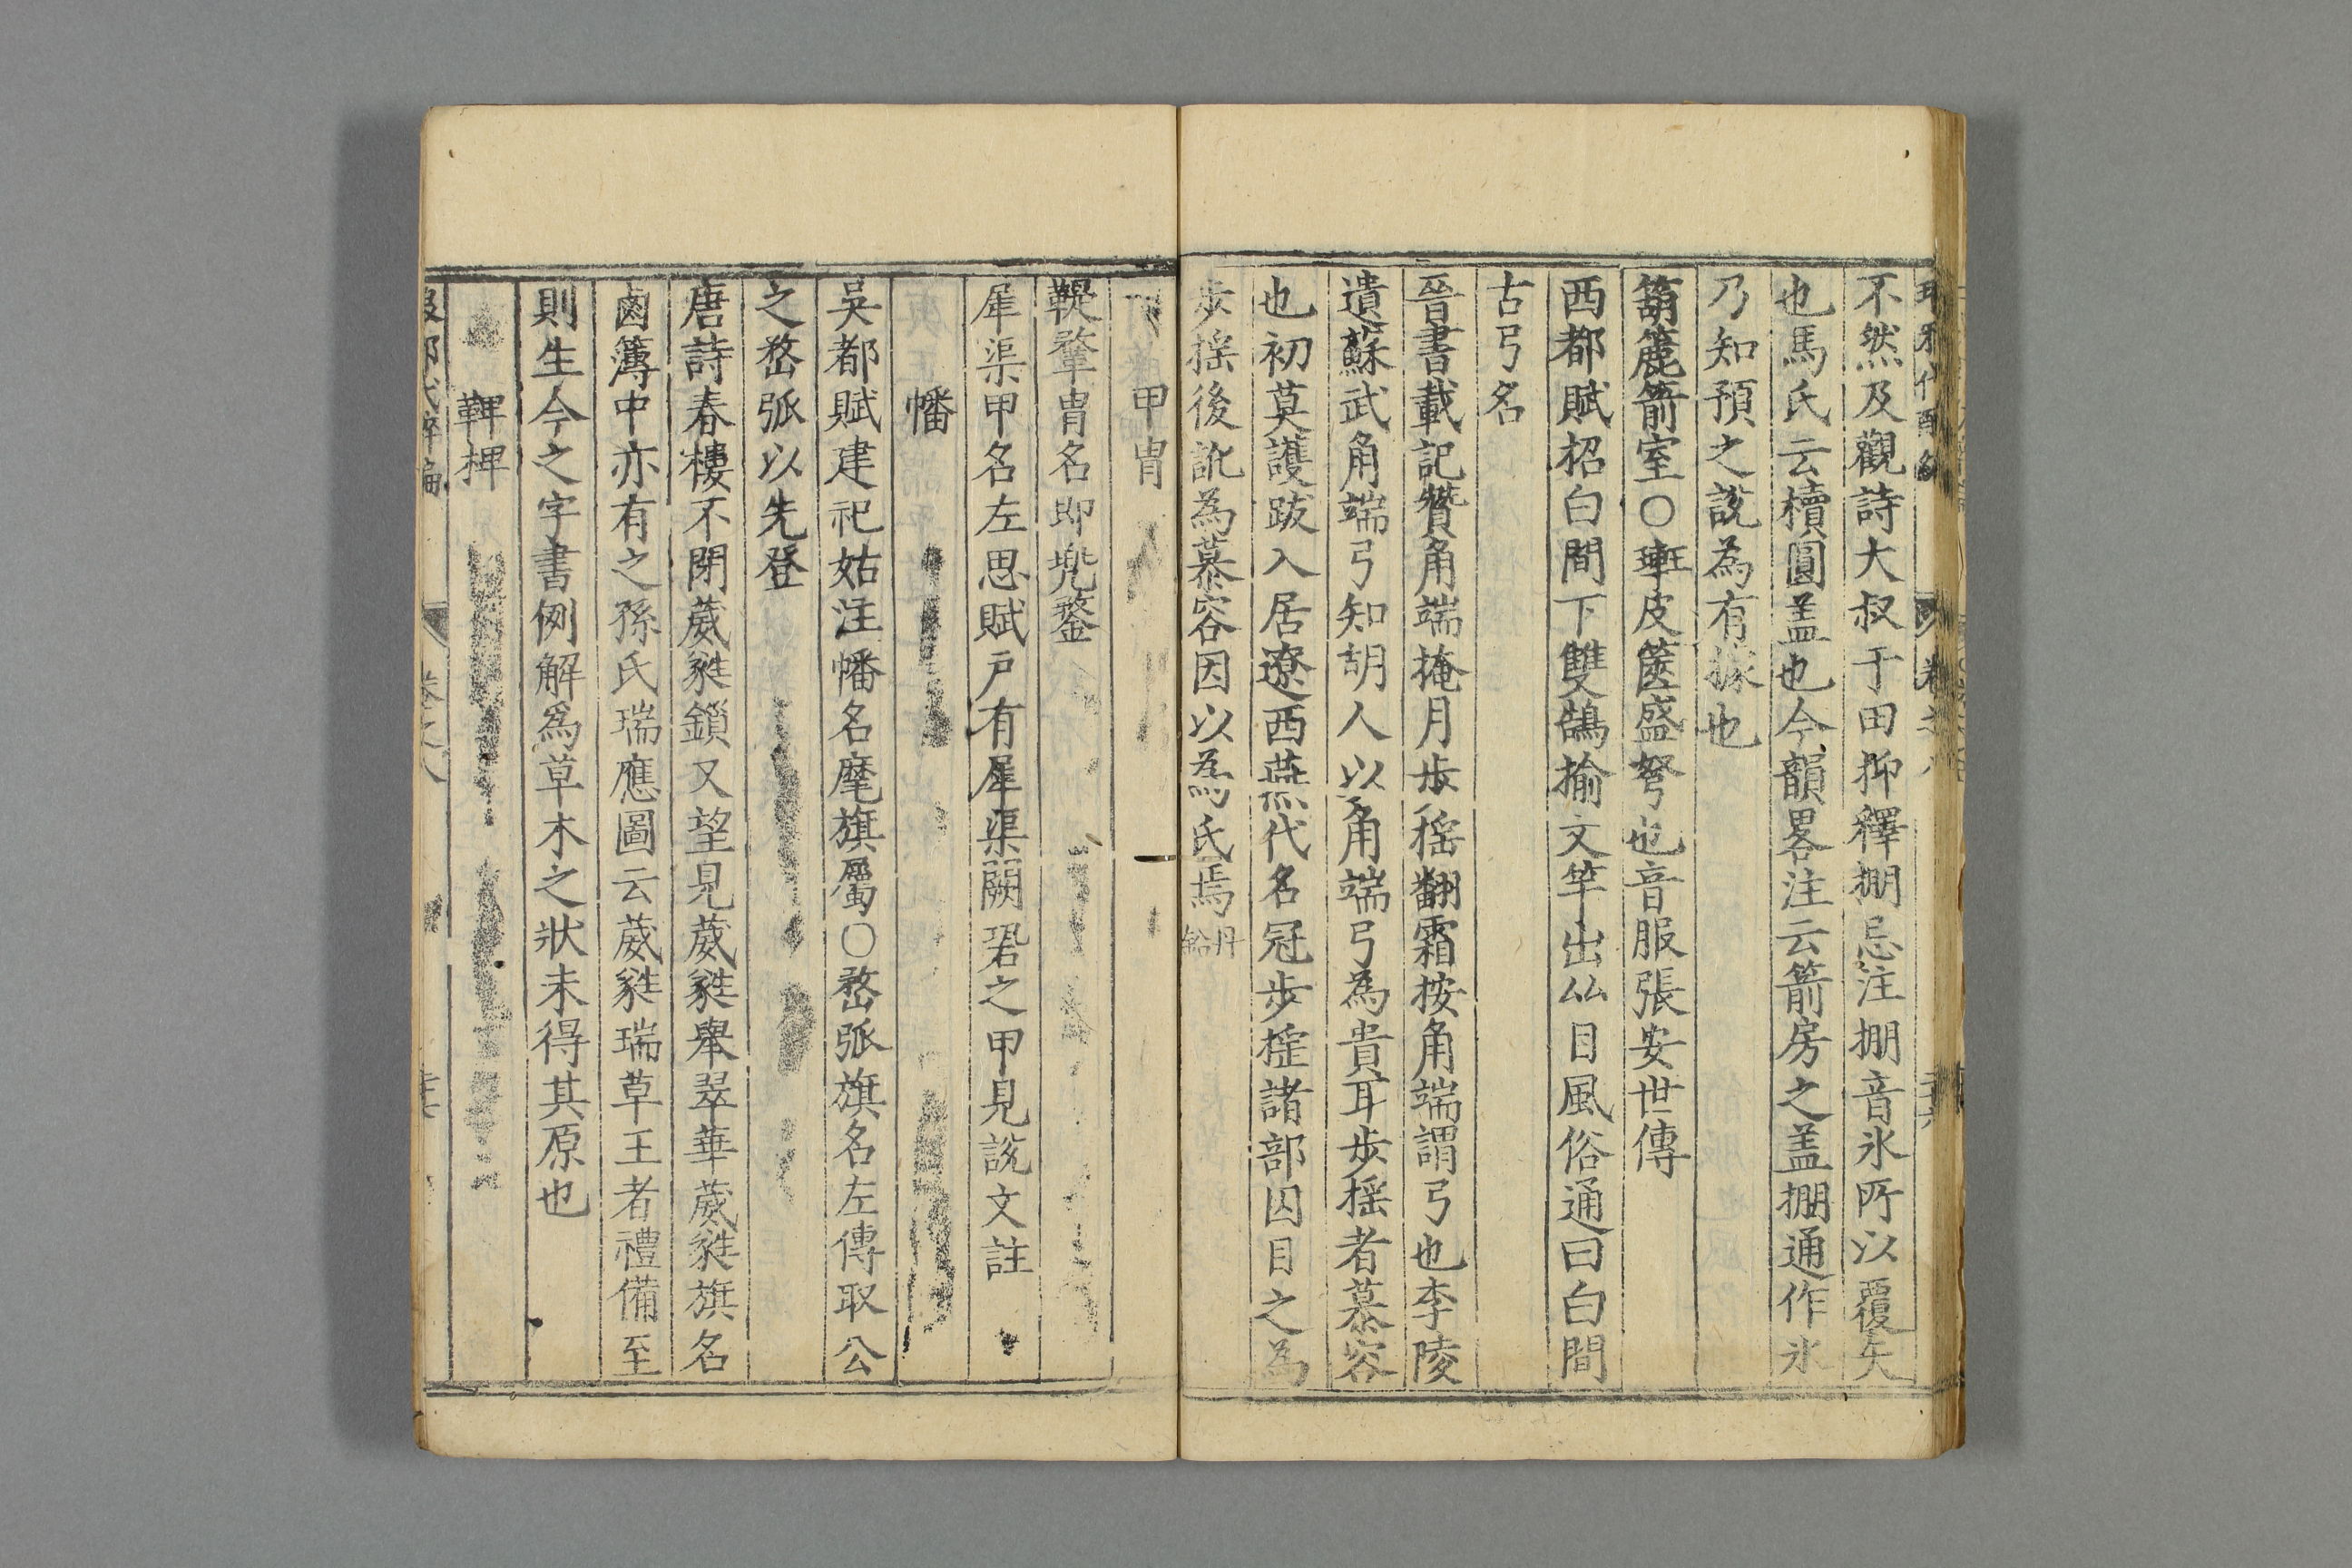 不然及觀詩大叔于田抑釋掤忌注掤音氷所以覆矢
也馬氏云櫝圓盖也今韻畧注云箭房之盖掤通作氷
乃知預之說為有據也
箶簏箭室○䡖皮篋盛弩也音服張安世傳
西都賦招白間下雙鵠揄文竿出公目風俗通曰白間
古弓名
晉書載記贊角端掩月步搖翻霜按角端謂弓也李陵
遺蘇武角端弓知胡人以角端弓為貴耳步搖者慕容
也初莫護跋入居遼西燕代名冠步搖諸部因目之為
步搖後訛為慕容因以為氏焉丹鉛
甲冑
鞮鞪冑名即兜鍪
犀渠甲名左思賦戶有犀渠闕鞏之甲見說文註
幡
吳都賦建祀姑注幡名麾旗屬○嵍弧旗名左傳取公
之嵍弧以先登
唐詩春樓不閉葳蕤鎖又望見葳蕤舉翠華葳蕤旗名
鹵簿中亦有之孫氏瑞應圖云葳蕤瑞草王者禮備至
則生今之字書例解為草木之狀未得其原也
鞞椑
卷之八